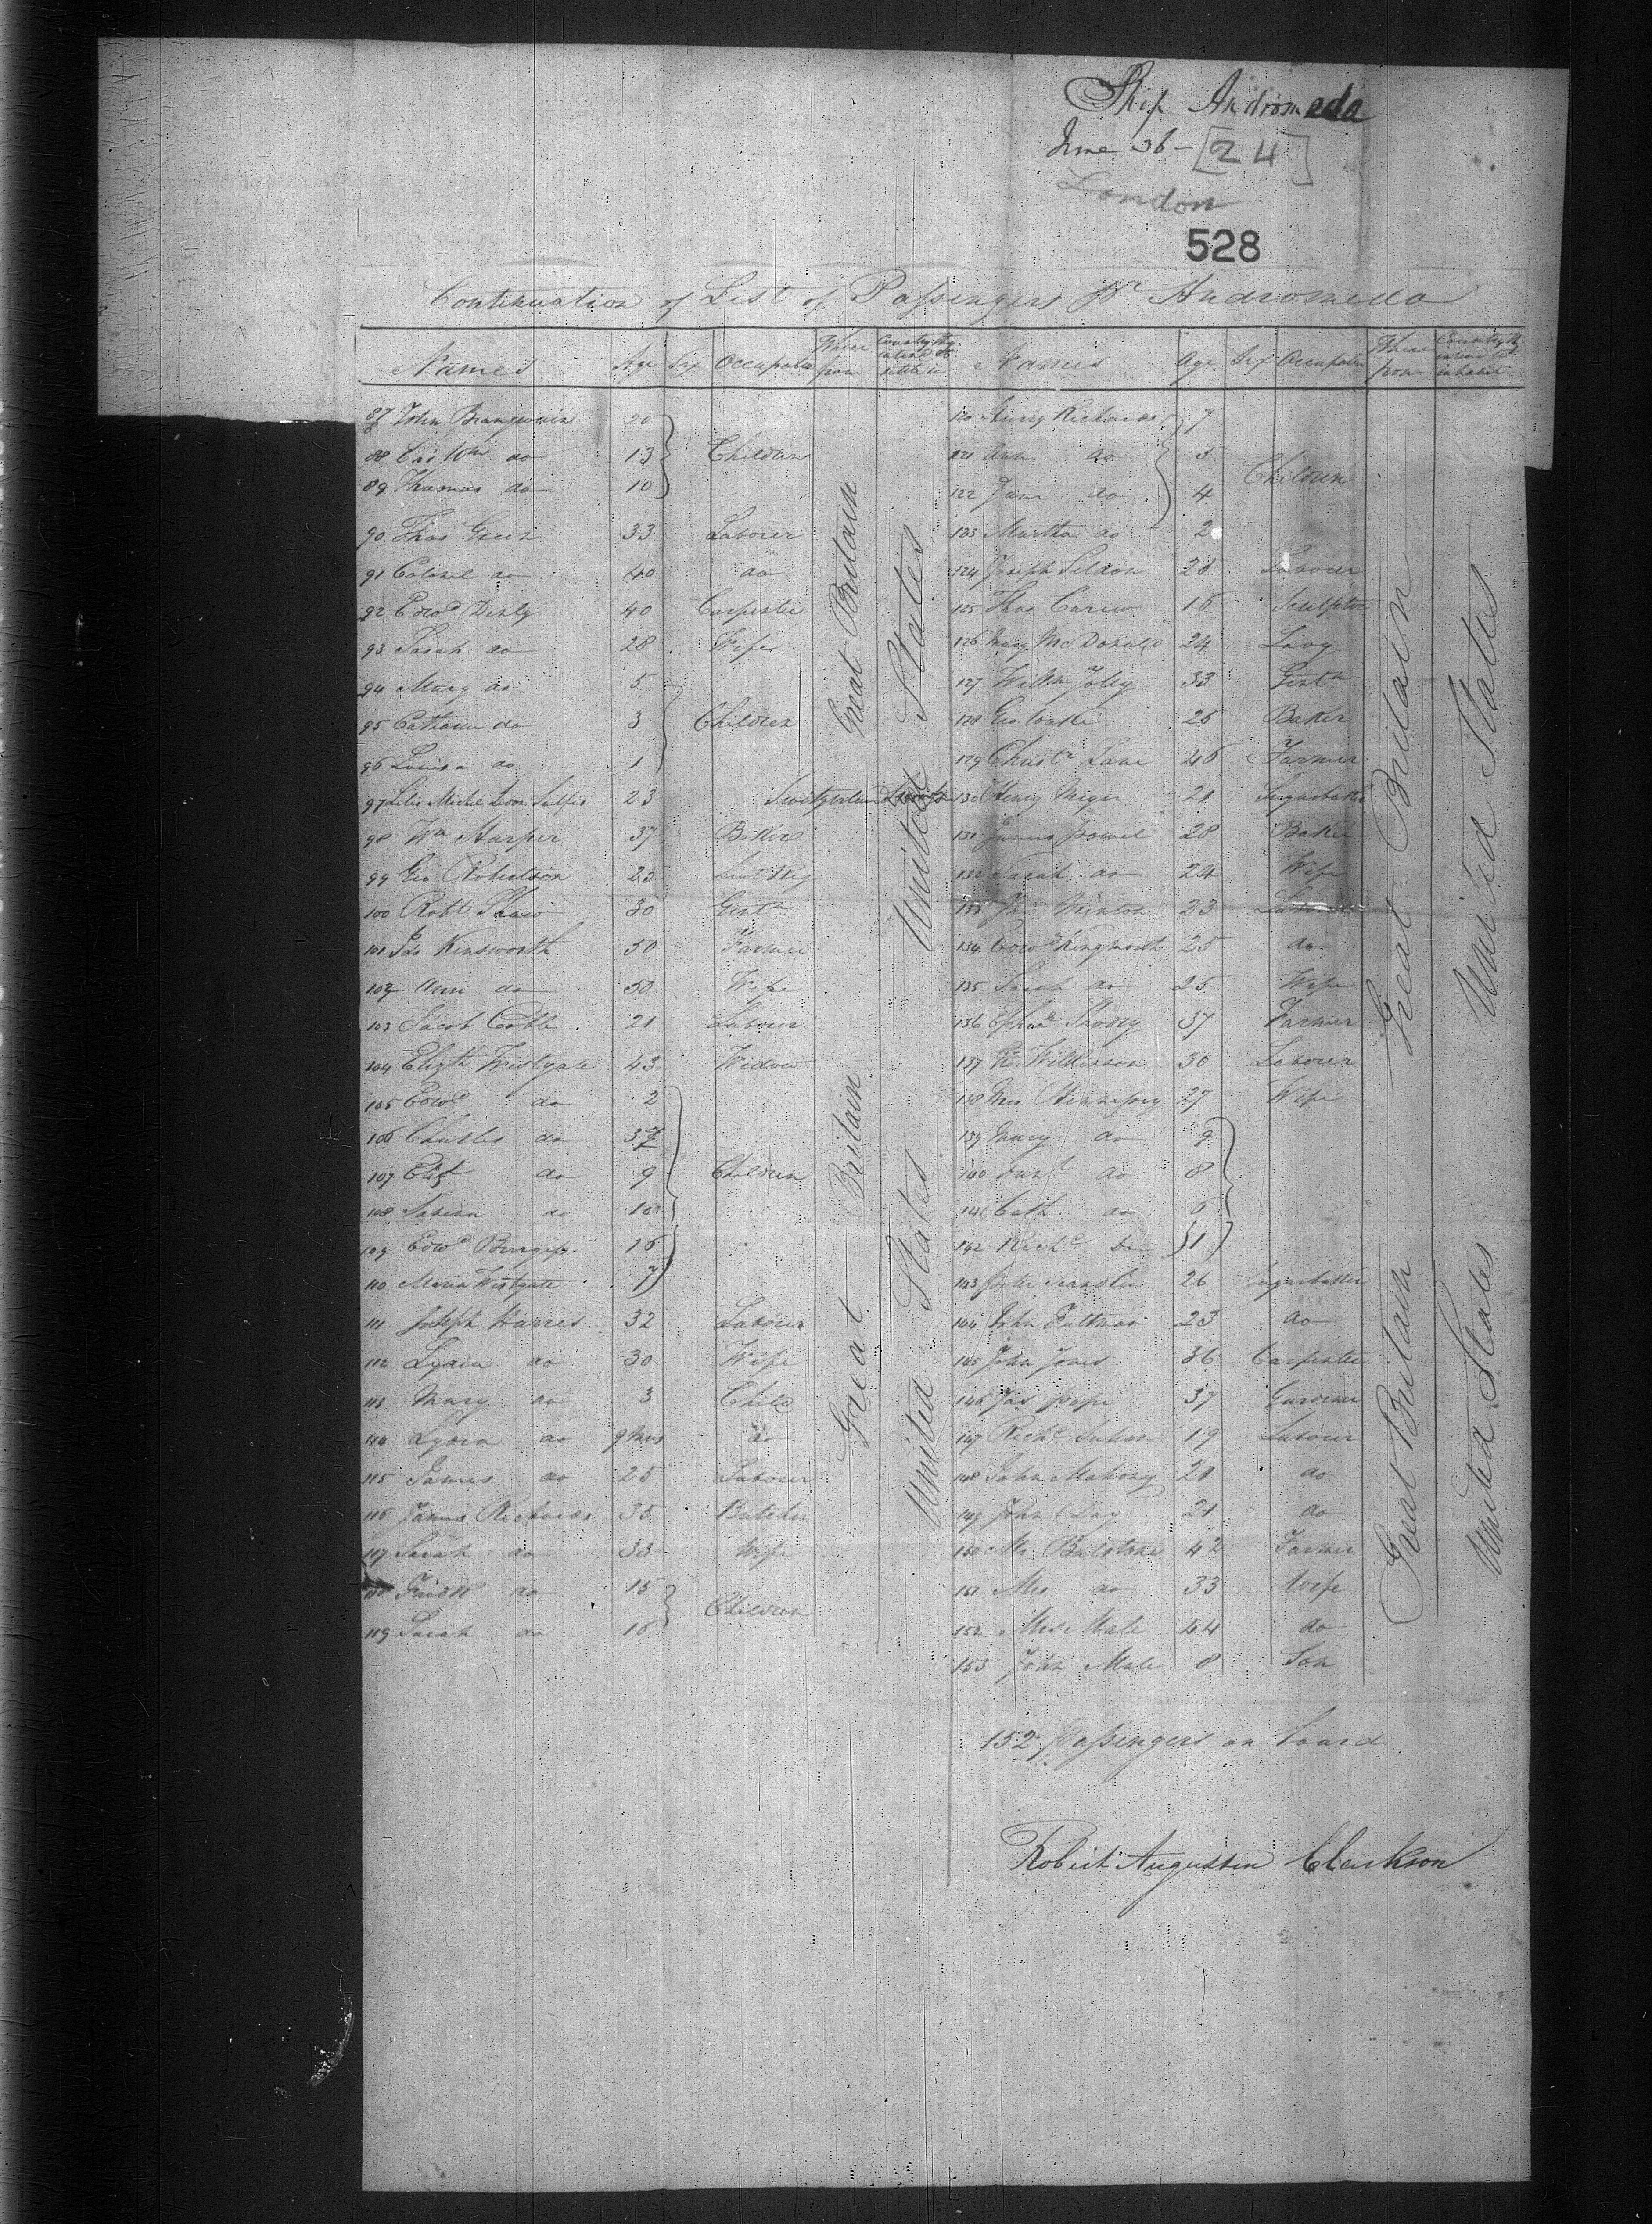 Ship Andromeda
June 36 - [24]
London
528
Continuation of List of Passengers pr Andromeda
Names Age Sex Occupation Where from Country they intend to
Names Age Sex Occupation Where from Country they intend to inhabit
87 John 20
88 do 13 Children
89 Thomas do 10
90 Thos Green 33 Labourer
91 do 40 do
92 Edwd Denly 40 Carpenter
93 Sarah do 28 Wife
94 Mary do 5
95 Catharine do 3 Children
96 Louisa do 1
97 23 Switzerland
98 Wm Harper 37 Baker
99 Geo Robertson 25
100 Robt Shaw 30 Gentn
101 Jas Kensworth 50 Farmer
102 Ann do 50 Wife
103 Jacob Cobb 21 Labourer
104 Elizth Westgate 43 Widow
105 Edwd do 2
106 Charles do
107 Eliz do 9 Children
108 do 10
109 Edwd Burgess 16
110 Maria Westgate 7
111 Joseph Harris 32 Labourer
112 Lydia do 30 Wife
113 Mary do 3 Child
114 Lydia do 9 Mos do
115 James do 25 Labourer
116 James Richards 35 Butcher
117 Sarah do 33 Wife
118 do 15 Children
119 Sarah do 10
Great Britain
United States
Great Britain
United States
120 Henry Richards 7
121 Ann do 5 Children
122 Jane do 4
123 Martha do 2
124 Joseph Seldon 28 Labourer
125 Thos Carew 16 Sculptor
126 Mary McDonald 24 Lady
127 Willm Joley 33 Gentn
128 Geo 26 Baker
129 Christr Lane 46 Farmer
130 Henry 21 Sugarbaker
131 James Powel 28 Baker
132 Sarah do 24 Wife
133 Jas Minton 23 Labourer
134 Edwd Kingworth 25 do
135 Sarah do 25 Wife
136 37 Farmer
137 Wilkinson 30 Labourer
138 Mrs Hennessy 27 Wife
139 Mary do 9
140 do 8
141 Cath do 6
142 Richd Do 1
143 26 Sugarbaker
144 John 23 do
145 John Jones 36 Carpenter
146 Jas Pope 37 Gardener
147 Richd 19 Labourer
148 John Mahony 21 do
149 John Day 21 do
150 Mr Bilstone 42 Farmer
151 Mrs do 33 Wife
152 Mrs Male 44 do
153 John Male 8 Son
Great Britain
United States
Great Britain
United States
152 passengers on board
Robert Augustin Clarkson